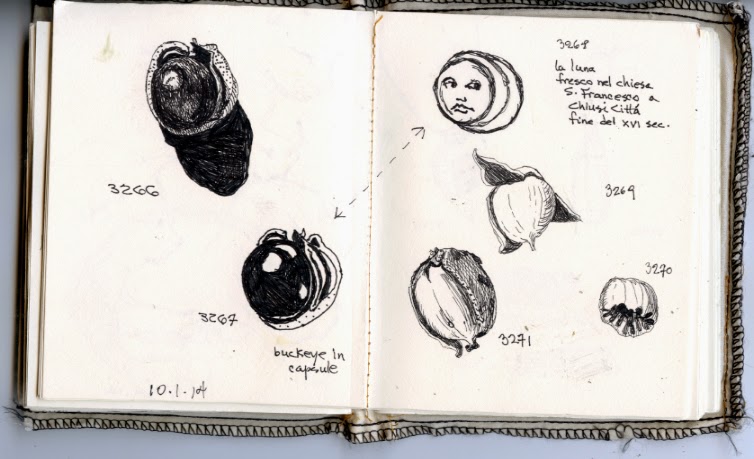 3266
3267
buckeye in
capsule
10.1.14
3268
la luna
fresco nel chiesa
S. Francesco a
Chiusi Città
fine del XVI sec.
3269
3270
3271